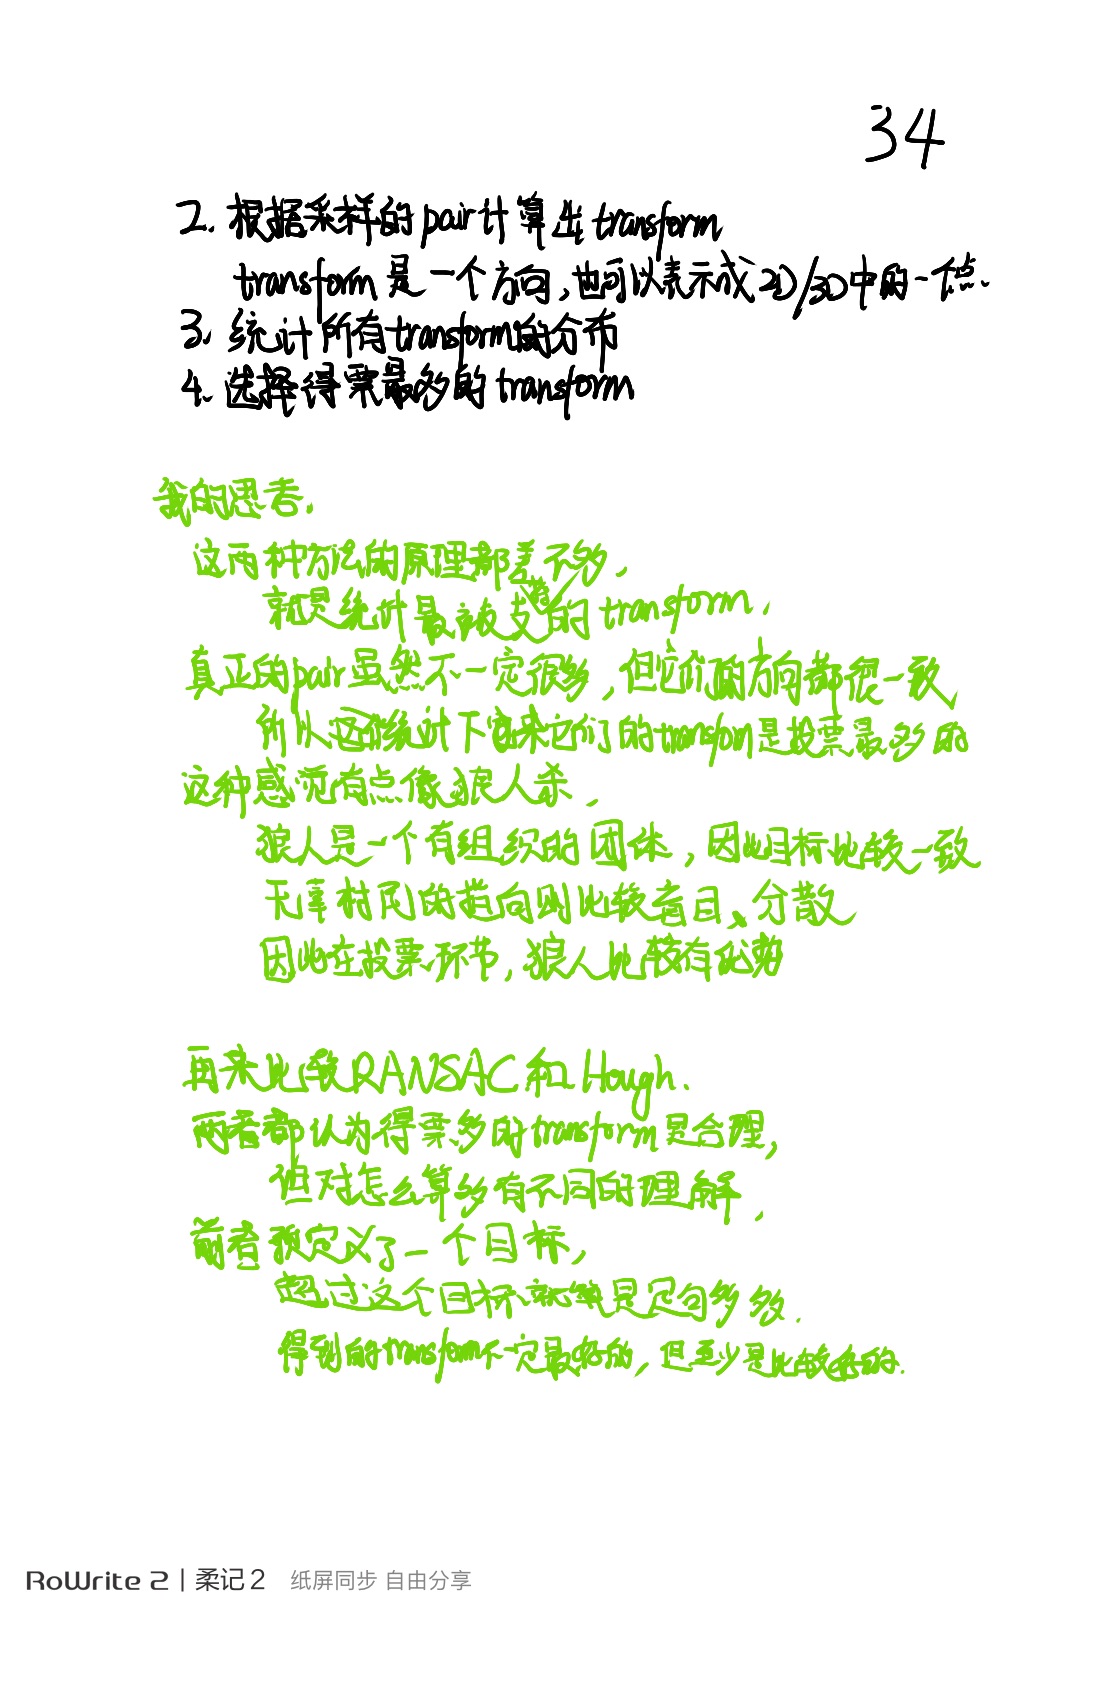 34
2. 根据采样的pair计算出transform
transform是一个方向,也可以表示成2D/3D中的一个点.
3. 统计所有transform的分布
4. 选择得票最多的transform
我的思考.
这两种方法的原理都差不多,
就是统计最被支持的transform,
真正的pair虽然不一定很多,但它们的方向都很一致,
所以统计下来它们的transform是投票最多的
这种感觉有点像狼人杀,
狼人是一个有组织的团体,因此目标比较一致
无辜村民的指向则比较盲目、分散
因此在投票环节,狼人比较有优势
再来比较RANSAC和Hough.
两者都认为得票多的transform是合理,
但对怎么算多有不同的理解,
前者预定义了一个目标,
超过这个目标就算是足够多数.
得到的transform不一定最好的,但至少是比较好的.
RoWrite 2 | 柔记 2 纸屏同步 自由分享